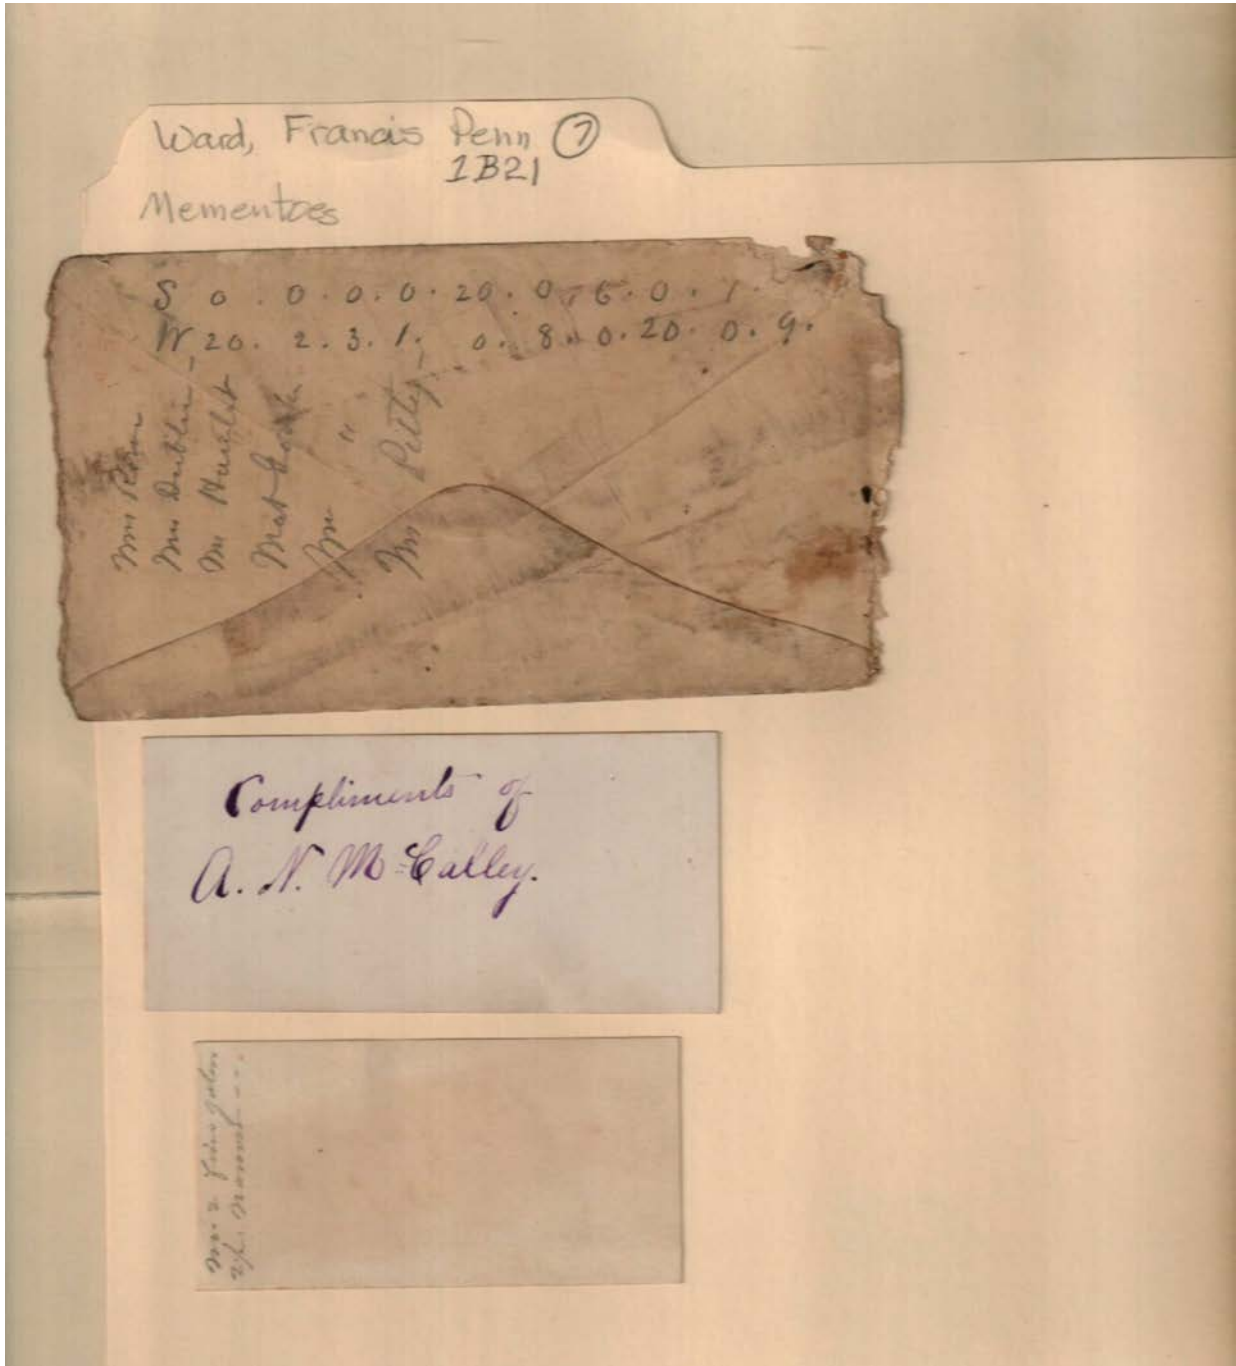 Ward, Francis Penn ⑦
1B21
Mementoes
S 0 . 0 . 0 . 0 . 20 . 0 . 6 . 0 . 1 .
W 20 . 2 . 3 . 1 . 0 . 8 . 0 . 20 . 0 . 9 .
Mrs
Mrs Dublin -
M
Mat
Mrs "
Mrs Pettey -
Compliments of
A. N. McCalley.